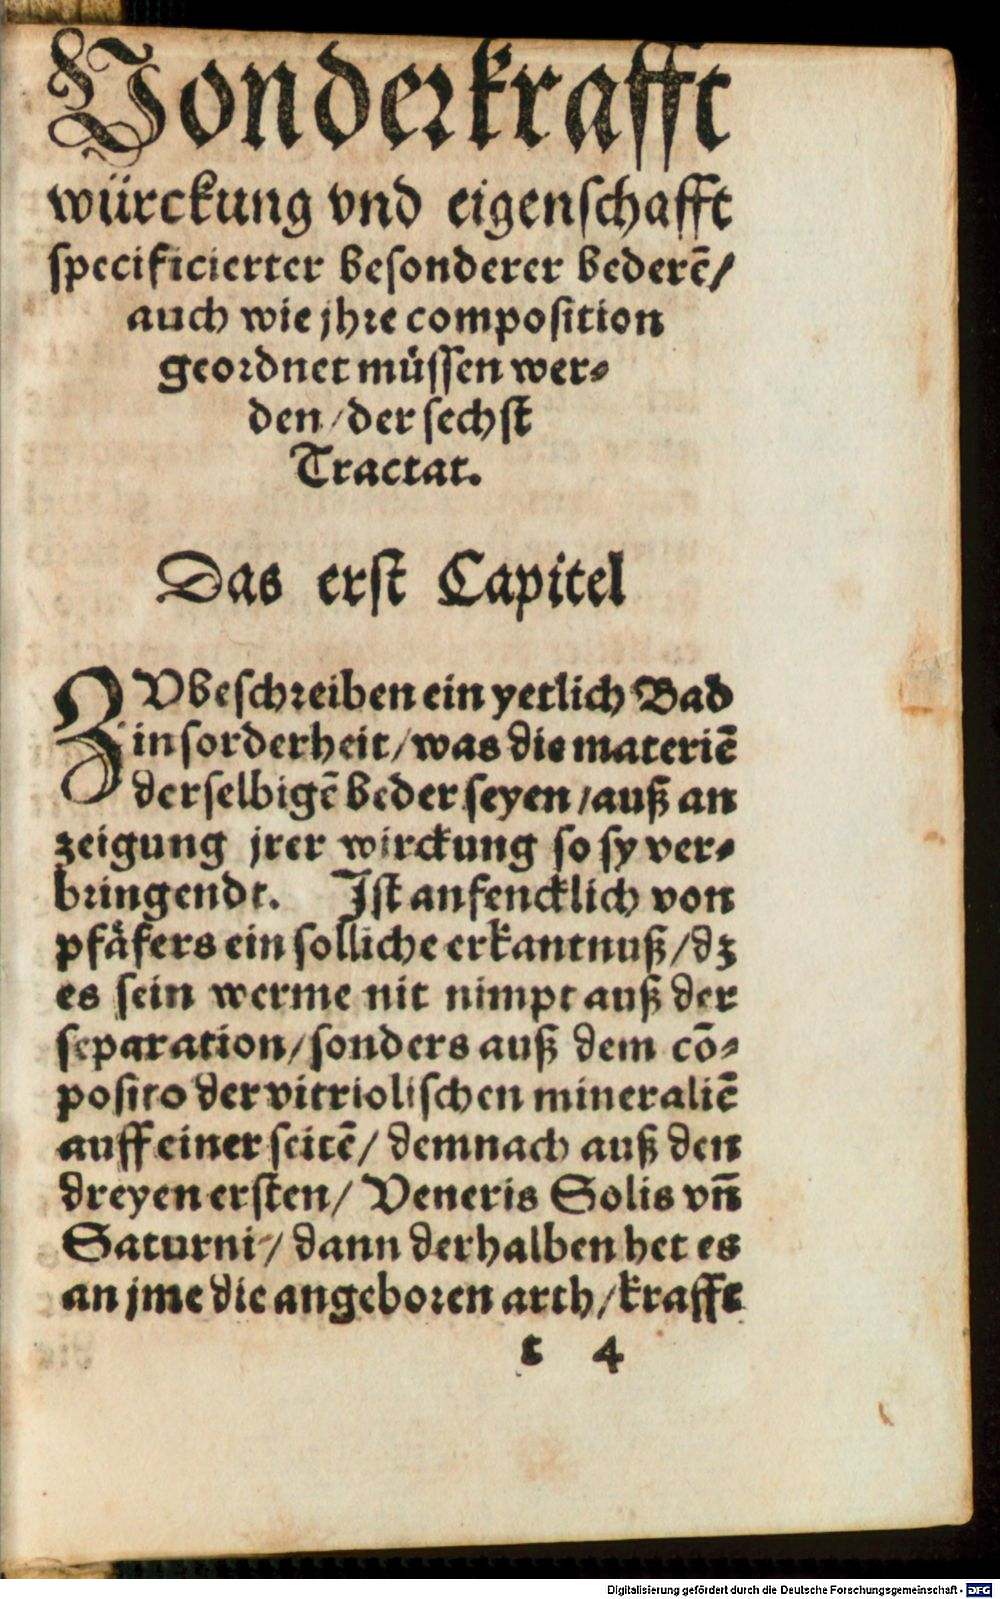 Vonderkrafft
würckung vnd eigenschafft
specificierter besonderer bederē/
auch wie jhre composition
geordnet müssen wer-
den/der sechst
Tractat.
Das erst Capitel
ZVbeschreiben ein yetlich Bad
in sorderheit/was die materiē
derselbigē beder seyen/auß an
zeigung jrer wirckung so sy ver-
bringendt. Ist anfencklich von
pfåfers ein solliche erkantnuß/dz
es sein werme nit nimpt auß der
separation/sonders auß dem cō-
posito der vitriolischen mineraliē
auff einer seitē/ demnach auß den
dreyen ersten/ Veneris Solis vñ
Saturni/ dann derhalben het es
an jme die angeboren arth/krafft
t 4
Digitalisierung gefördert durch die Deutsche Forschungsgemeinschaft - DFG